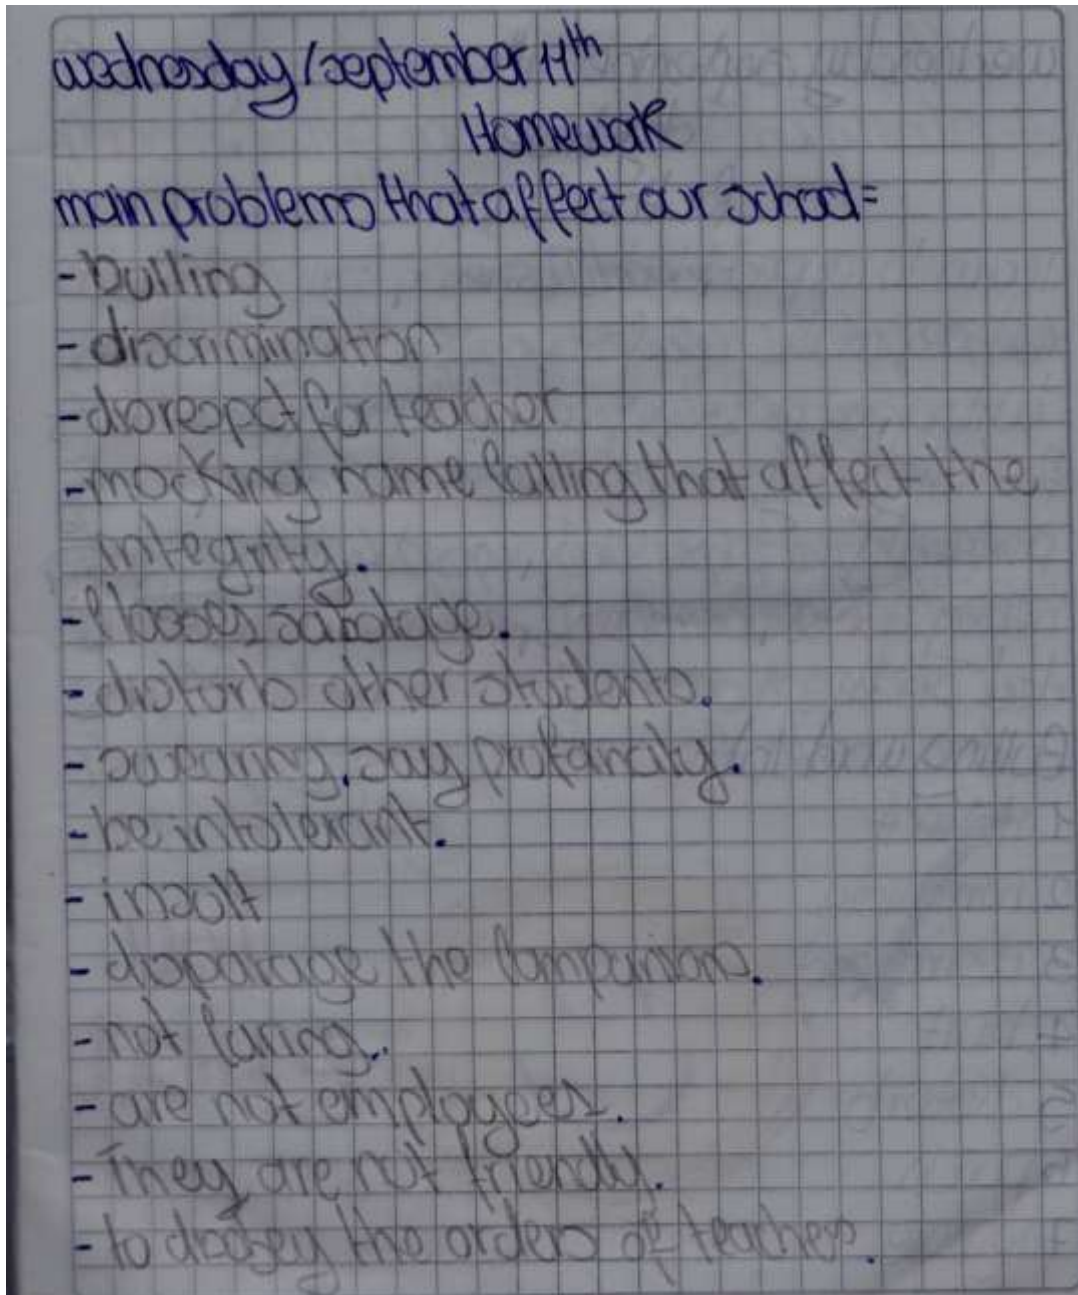 wednesday/september 11th
Homework
main problems that affect our school=
-bulling
-discrimination
-disrespect for teacher
-mocking name calling that affect the
integrity.
-classes sabotage.
-disturb other students.
-swearing, say profancity.
-be intolerant.
-insult
-disparage the companions.
-not caring.
-are not employees.
-They are not friendly.
-to disobey the orders of teachers.